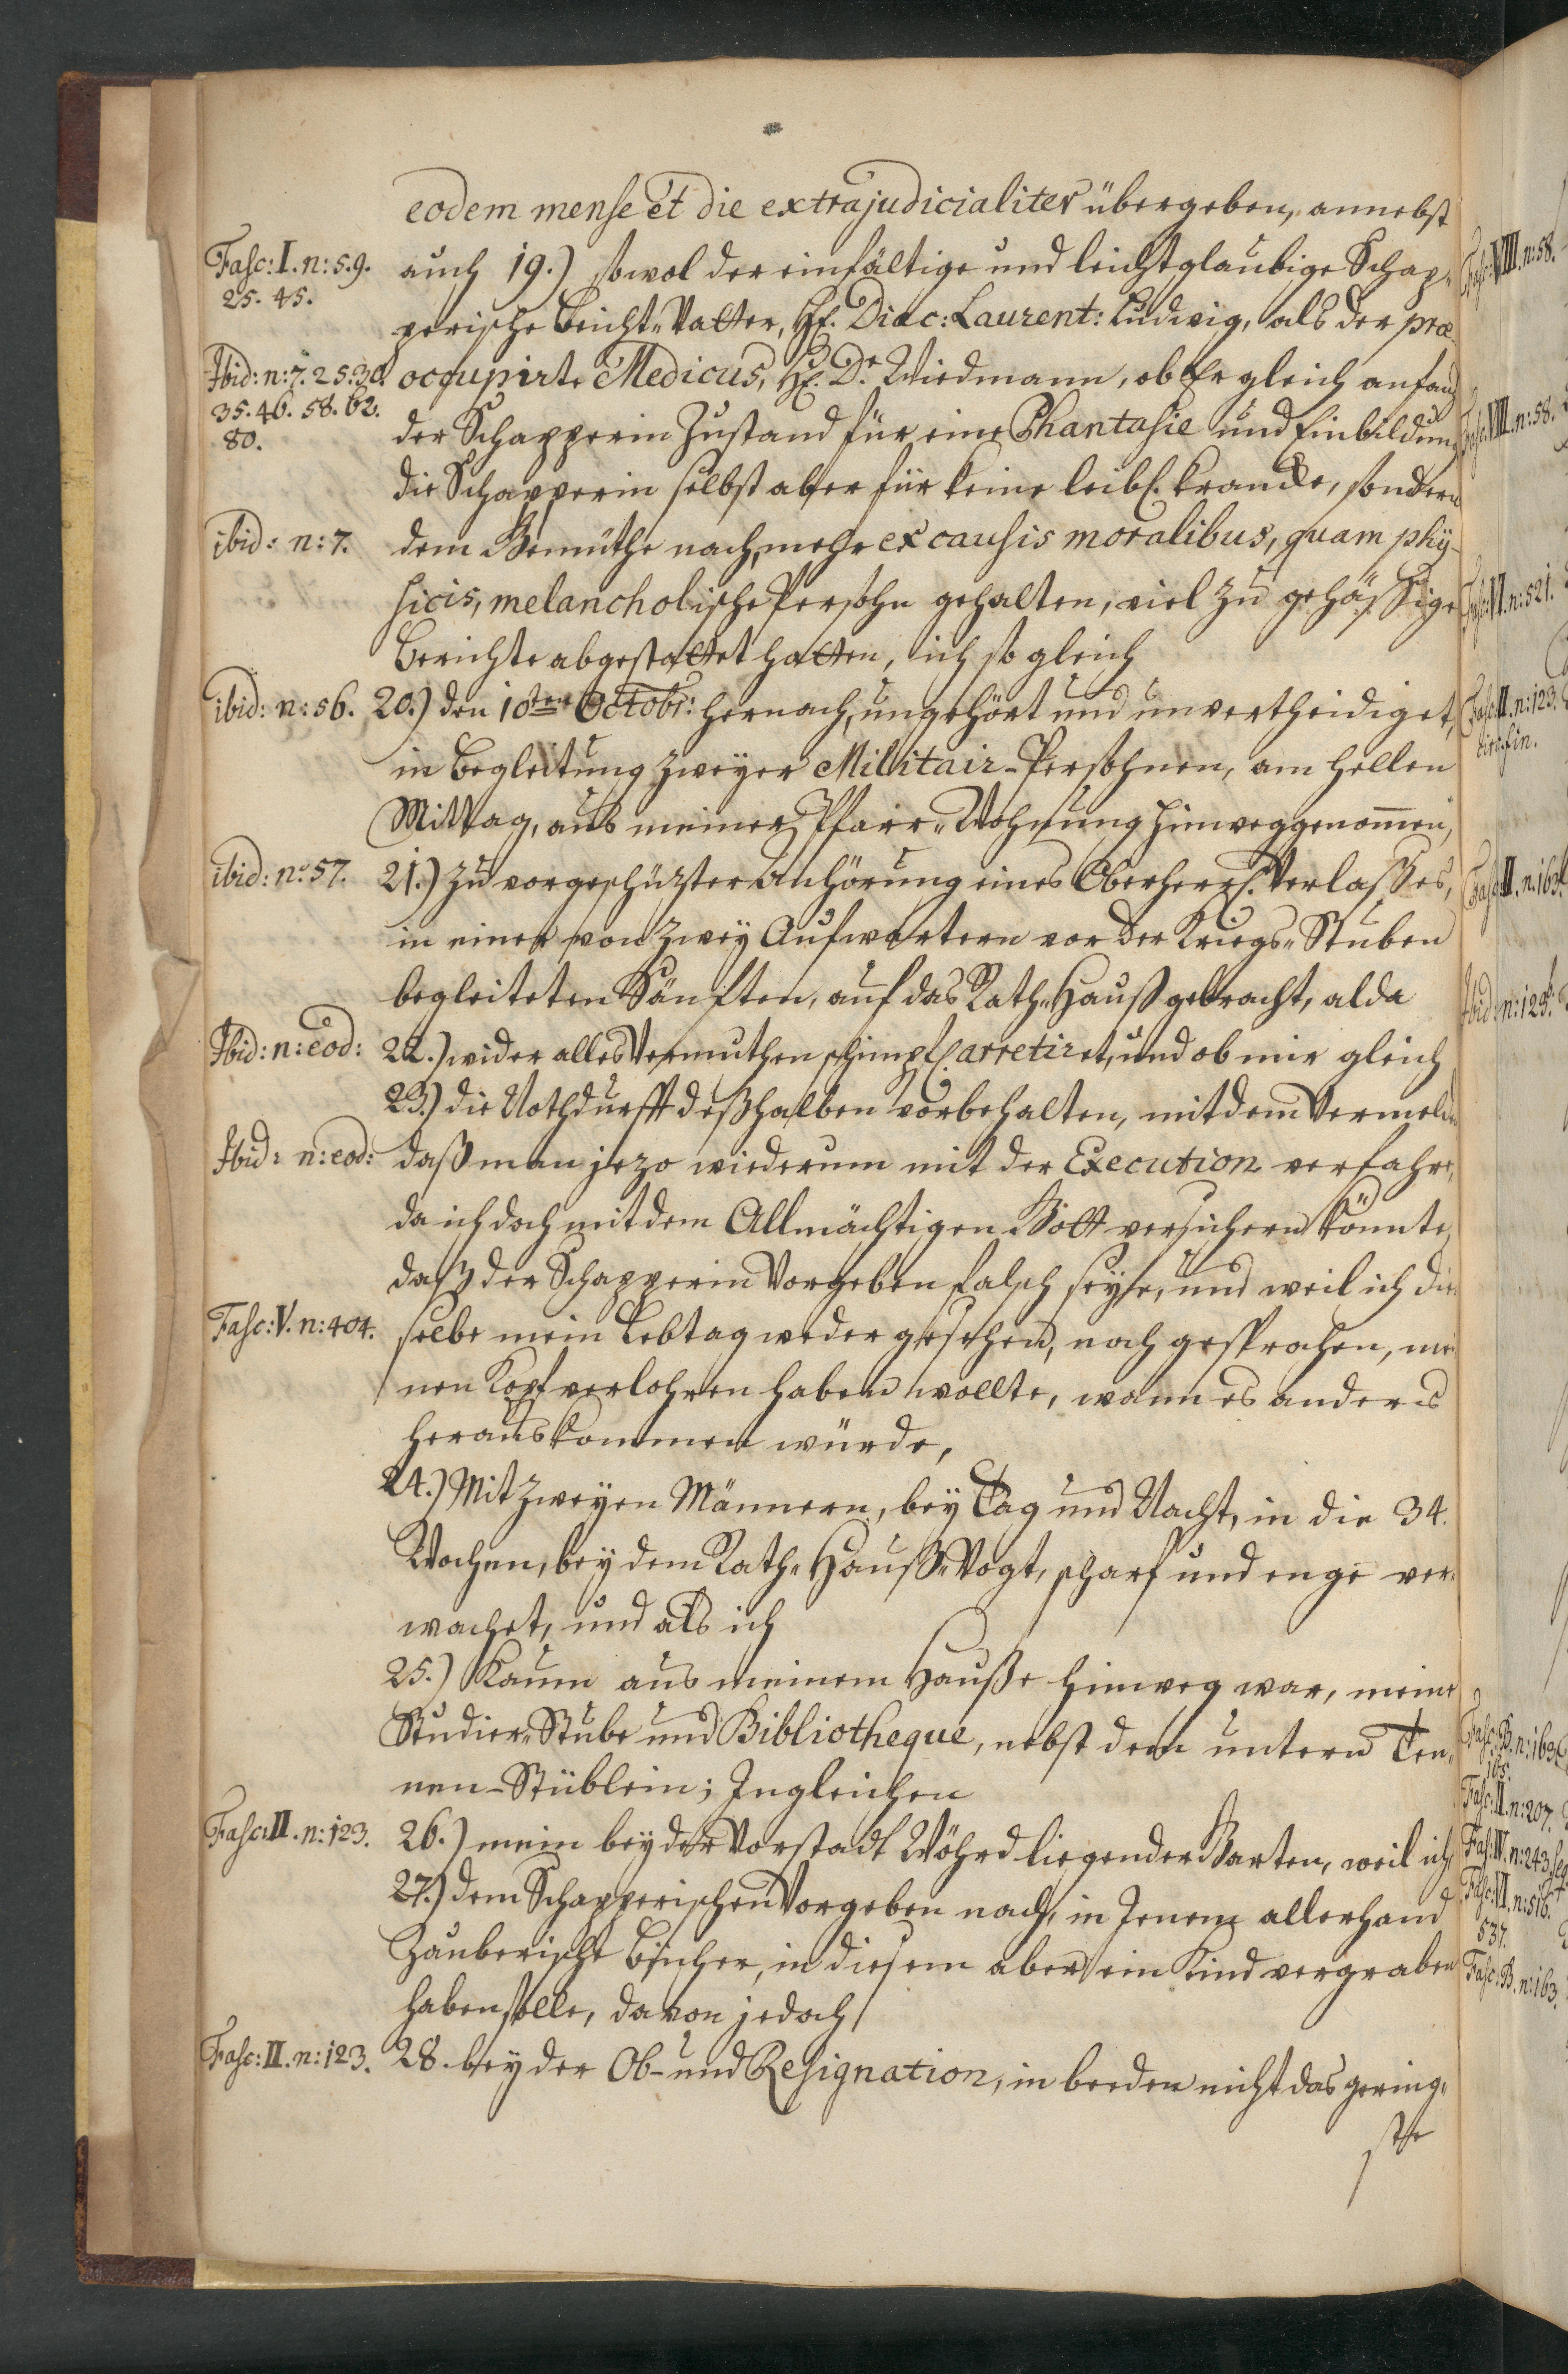 eodem mense et die extrajudicialiter übergeben, annebst
Fasc: I. n: 5. 9.
25. 45.
auch 19.) sowol der einfältige und leichtglaubige Schap„
perische Beicht„Vatter, H. Diac: Laurent: Ludwig, als der præ-
Ibid: n: 7. 25. 30.
35. 46. 58. 62.
80.
occupirte Medicus, H. Dr. Wiedmann, ob Er gleich anfang
der Schapperin Zustand für eine Phantasie und Einbildung
die Schapperin selbst aber für keine leibl. krancke, sondern
ibid: n: 7.
dem Gemüthe nach, mehr ex causis moralibus, quam phÿ-
sicis, melancholische Persohn gehalten, viel zu gehässige
Berichte abgestattet hatten, ich so gleich
ibid: n: 56.
20.) den 10ten Octobr: hernach, ungehört und unvertheidiget,
in Begleitung zweyer Militair-Persohnen, am hellen
Mittag, aus meiner Pfarr„Wohnung hinweggenom̄en,
ibid: no 57.
21.) zu vorgeschüzter Anhörung eines Oberherrl. Verlaßes,
in einer von zwey Aufwartern vor der Kriegs„Stuben
begleiteten Sänften, auf das Rath„Hauß gebracht, alda
Ibid: n: eod:
22.) wider alles Vermuthen schimpfl. arretiret, und ob mir gleich
23.) die Nothdurfft deßhalben vorbehalten, mit dem Vermelden
Ibid: n: eod:
daß man jezo wiederum mit der Execution verfahre,
da ich doch mit dem Allmächtigen Gott versichern könnte,
daß der Schapperin Vorgeben falsch seye, und weil ich die
Fasc: V. n: 404.
selbe mein Lebtag weder gesehen, noch gesprochen, mei
nen Kopf verlohren haben wollte, wann es anders
herauskommen würde,
24.) Mit zweyen Männern, bey Tag und Nacht, in die 34.
Wochen, bey dem Rath„Hauß„Vogt, scharf und enge ver„
wachet, und als ich
25.) Kaum aus meinem Hauße hinweg war, meine
Studier„Stube und Bibliotheque, nebst dem untern Ten„
nen-Stüblein; Ingleichen
Fasc: II. n: 123.
26.) mein bey der Vorstadt Wöhrd liegender Garten, weil ich
27.) dem Schapperischen Vorgeben nach, in Jenem allerhand
Zauberische Bücher, in diesem aber ein Kind vergraben
haben solle, davon jedoch
Fasc: II. n: 123.
28. bey der Ob- und Resignation, in beeden nicht das gering„
ste
Fasc: VIII. n: 58.
Fasc: VIII. n: 58.
Fasc: VI. n: 521.
Fasc: II. n: 123.
Fasc: II. n: 163.
Ibid: n: 129.
Fasc: B. n: 163.
165.
Fasc: II. n: 207.
Fasc: IV. n: 243
Fasc: VI. n: 516.
537.
Fasc: B. n: 163.